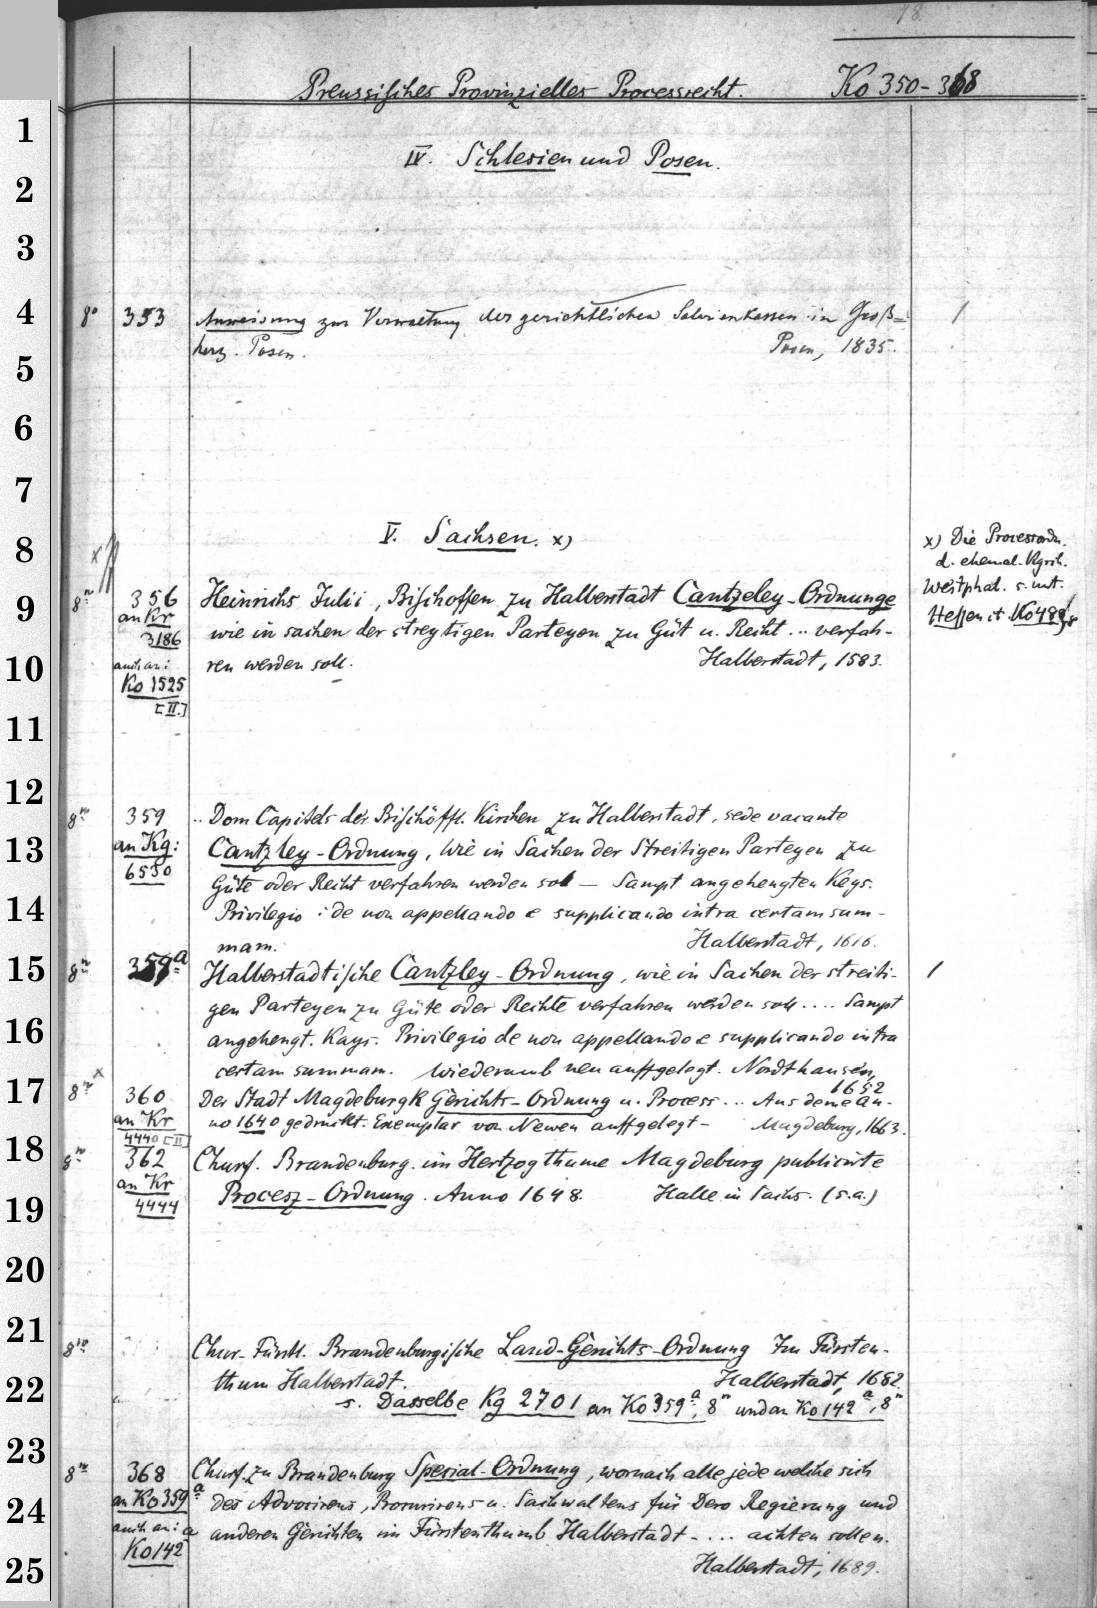 18.
Preussisches Provinzielles Processrecht. Ko 350-368
IV. Schlesien und Posen.
8° 353 Anweisung zur Verwaltung der gerichtlichen Salarienkassen in Groß= 1
herz. Posen. Posen, 1835.
V. Sachsen. x)
x) Die Processordn.
d. ehemal. Kgrch.
Westphal. s. unt.
Hessen
8° 356 Heinrichs Julii, Bischoffen zu Halberstadt Cantzeley-Ordnunge
an Kr 3186 wie in sachen der streytigen Parteyen zu Güt u. Recht .. verfah-
auch an: Ko 1525 [II.] ren werden soll. Halberstadt, 1583.
8° 359 .. Dom Capitels der Bischöffl. Kirchen zu Halberstadt, sede vacante
an Kg: 6550 Cantzley-Ordnung, wie in Sachen der Streitigen Parteyen zu
Güte oder Recht verfahren werden sol — Sampt angehengten Keys.
Privilegio : de non appellando e supplicando intra certam sum-
mam. Halberstadt, 1616.
8° 359a Halberstadtische Cantzley-Ordnung, wie in Sachen der streiti- 1
gen Parteyen zu Güte oder Rechte verfahren werden soll .... Sampt
angehengt. Kays. Privilegio de non appellando e supplicando intra
certam summam. Wiederumb neu auffgelegt. Nordthausen,
1652
8° x 360 Der Stadt Magdeburgk Gerichts-Ordnung u. Process ... Aus deme an-
an Kr 4440 [II] no 1640 gedruckt. Exemplar von Newen auffgelegt - Magdeburg, 1663.
8° 362 Churf. Brandenburg. im Hertzogthume Magdeburg publicirte
an Kr 4444 Procesz-Ordnung. Anno 1648. Halle in Sachs. (s.a.)
8° Chur-Fürstl. Brandenburgische Land-Gerichts-Ordnung Im Fürsten-
thum Halberstadt. Halberstadt, 1682.
s. Dasselbe Kg 2701 an Ko 359a, 8° und an Ko 142a, 8°
8° 368 Churf. zu Brandenburg Special-Ordnung, wornach alle jede welche sich
an Ko 359a des Advocirens, Procurirens u. Sachwaltens für Dero Regierung und
auch an: Ko 142a anderen Gerichten im Fürstenthumb Halberstadt - ... achten sollen.
Halberstadt, 1689.
1
2
3
4
5
6
7
8
9
10
11
12
13
14
15
16
17
18
19
20
21
22
23
24
25